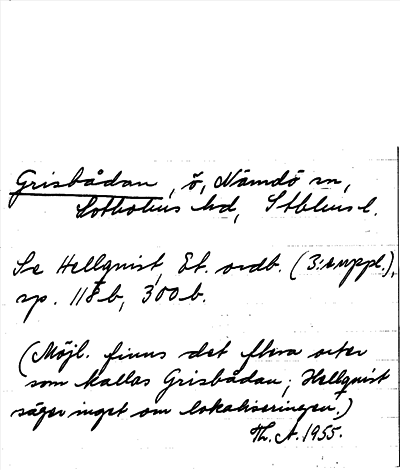 Grisbådan, ö, Nämdö sn,
Sotholms hd, Sthlms l.
Se Hellquist, Et. ordb. (3:e uppl.),
sp. 118 b, 300 b.
(Möjl. finns det flera orter
som kallas Grisbådan; Hellquist
säger inget om lokaliseringen.)
Th. A. 1955.